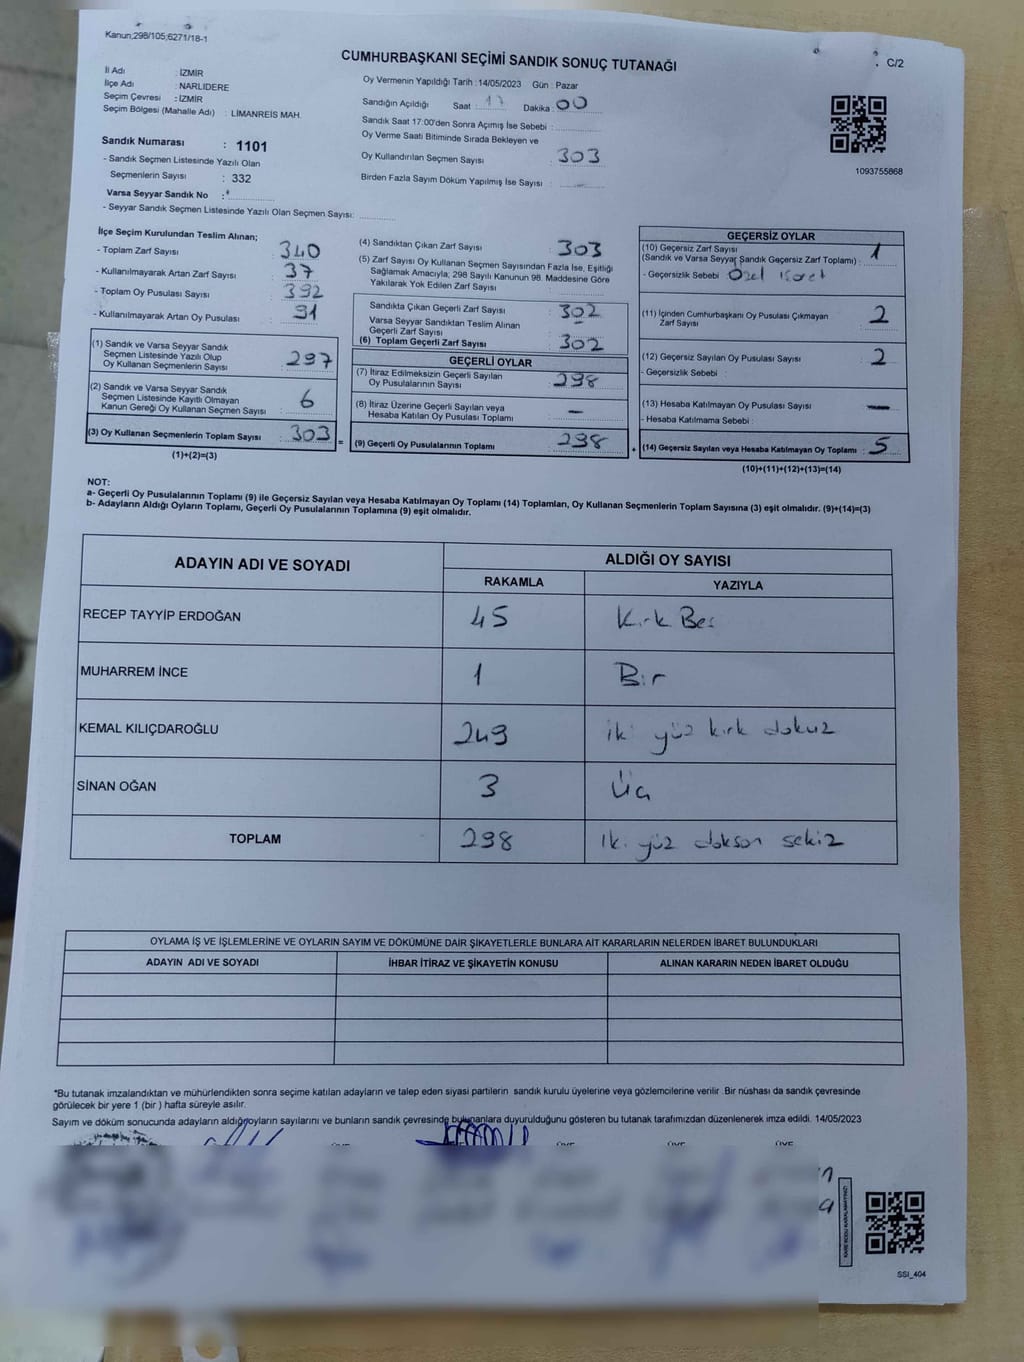 Kanun;298/105;6271/18-1
CUMHURBAŞKANI SEÇİMİ SANDIK SONUÇ TUTANAĞI
C/2
İl Adı : İZMİR
İlçe Adı : NARLIDERE
Seçim Çevresi : İZMİR
Seçim Bölgesi (Mahalle Adı) : LİMANREİS MAH.
Sandık Numarası : 1101
- Sandık Seçmen Listesinde Yazılı Olan
Seçmenlerin Sayısı : 332
Varsa Seyyar Sandık No :*
- Seyyar Sandık Seçmen Listesinde Yazılı Olan Seçmen Sayısı:
Oy Vermenin Yapıldığı Tarih :14/05/2023 Gün : Pazar
Sandığın Açıldığı Saat : 17 Dakika : 00
Sandık Saat 17:00'den Sonra Açımış İse Sebebi :
Oy Verme Saati Bitiminde Sırada Bekleyen ve
Oy Kullandırılan Seçmen Sayısı : 303
Birden Fazla Sayım Döküm Yapılmış İse Sayısı : —
1093755868
İlçe Seçim Kurulundan Teslim Alınan;
- Toplam Zarf Sayısı : 340
- Kullanılmayarak Artan Zarf Sayısı : 37
- Toplam Oy Pusulası Sayısı : 392
- Kullanılmayarak Artan Oy Pusulası : 91
(1) Sandık ve Varsa Seyyar Sandık
Seçmen Listesinde Yazılı Olup
Oy Kullanan Seçmenlerin Sayısı : 297
(2) Sandık ve Varsa Seyyar Sandık
Seçmen Listesinde Kayıtlı Olmayan
Kanun Gereği Oy Kullanan Seçmen Sayısı : 6
(3) Oy Kullanan Seçmenlerin Toplam Sayısı : 303 =
(1)+(2)=(3)
(4) Sandıktan Çıkan Zarf Sayısı : 303
(5) Zarf Sayısı Oy Kullanan Seçmen Sayısından Fazla İse, Eşitliği
Sağlamak Amacıyla, 298 Sayılı Kanunun 98. Maddesine Göre
Yakılarak Yok Edilen Zarf Sayısı :
Sandıkta Çıkan Geçerli Zarf Sayısı : 302
Varsa Seyyar Sandıktan Teslim Alınan
Geçerli Zarf Sayısı : –
(6) Toplam Geçerli Zarf Sayısı : 302
GEÇERLİ OYLAR
(7) İtiraz Edilmeksizin Geçerli Sayılan
Oy Pusulalarının Sayısı : 298
(8) İtiraz Üzerine Geçerli Sayılan veya
Hesaba Katılan Oy Pusulası Toplamı : –
(9) Geçerli Oy Pusulalarının Toplamı : 298 +
GEÇERSİZ OYLAR
(10) Geçersiz Zarf Sayısı
(Sandık ve Varsa Seyyar Sandık Geçersiz Zarf Toplamı) : 1
- Geçersizlik Sebebi : Özel işaret
(11) İçinden Cumhurbaşkanı Oy Pusulası Çıkmayan
Zarf Sayısı : 2
(12) Geçersiz Sayılan Oy Pusulası Sayısı : 2
- Geçersizlik Sebebi :
(13) Hesaba Katılmayan Oy Pusulası Sayısı : —
- Hesaba Katılmama Sebebi :
(14) Geçersiz Sayılan veya Hesaba Katılmayan Oy Toplamı : 5
(10)+(11)+(12)+(13)=(14)
NOT:
a- Geçerli Oy Pusulalarının Toplamı (9) ile Geçersiz Sayılan veya Hesaba Katılmayan Oy Toplamı (14) Toplamları, Oy Kullanan Seçmenlerin Toplam Sayısına (3) eşit olmalıdır. (9)+(14)=(3)
b- Adayların Aldığı Oyların Toplamı, Geçerli Oy Pusulalarının Toplamına (9) eşit olmalıdır.
ADAYIN ADI VE SOYADI ALDIĞI OY SAYISI
RAKAMLA YAZIYLA
RECEP TAYYİP ERDOĞAN 45 Kırk Beş
MUHARREM İNCE 1 Bir
KEMAL KILIÇDAROĞLU 249 iki yüz kırk dokuz
SİNAN OĞAN 3 Üç
TOPLAM 298 İki yüz doksan sekiz
OYLAMA İŞ VE İŞLEMLERİNE VE OYLARIN SAYIM VE DÖKÜMÜNE DAİR ŞİKAYETLERLE BUNLARA AİT KARARLARIN NELERDEN İBARET BULUNDUKLARI
ADAYIN ADI VE SOYADI İHBAR İTİRAZ VE ŞİKAYETİN KONUSU ALINAN KARARIN NEDEN İBARET OLDUĞU
*Bu tutanak imzalandıktan ve mühürlendikten sonra seçime katılan adayların ve talep eden siyasi partilerin sandık kurulu üyelerine veya gözlemcilerine verilir .Bir nüshası da sandık çevresinde
görülecek bir yere 1 (bir ) hafta süreyle asılır.
Sayım ve döküm sonucunda adayların aldığı oyların sayılarını ve bunların sandık çevresinde bulunanlara duyurulduğunu gösteren bu tutanak tarafımızdan düzenlenerek imza edildi. 14/05/2023
KARE KODU KARALAMAYINIZ!
SSI_404